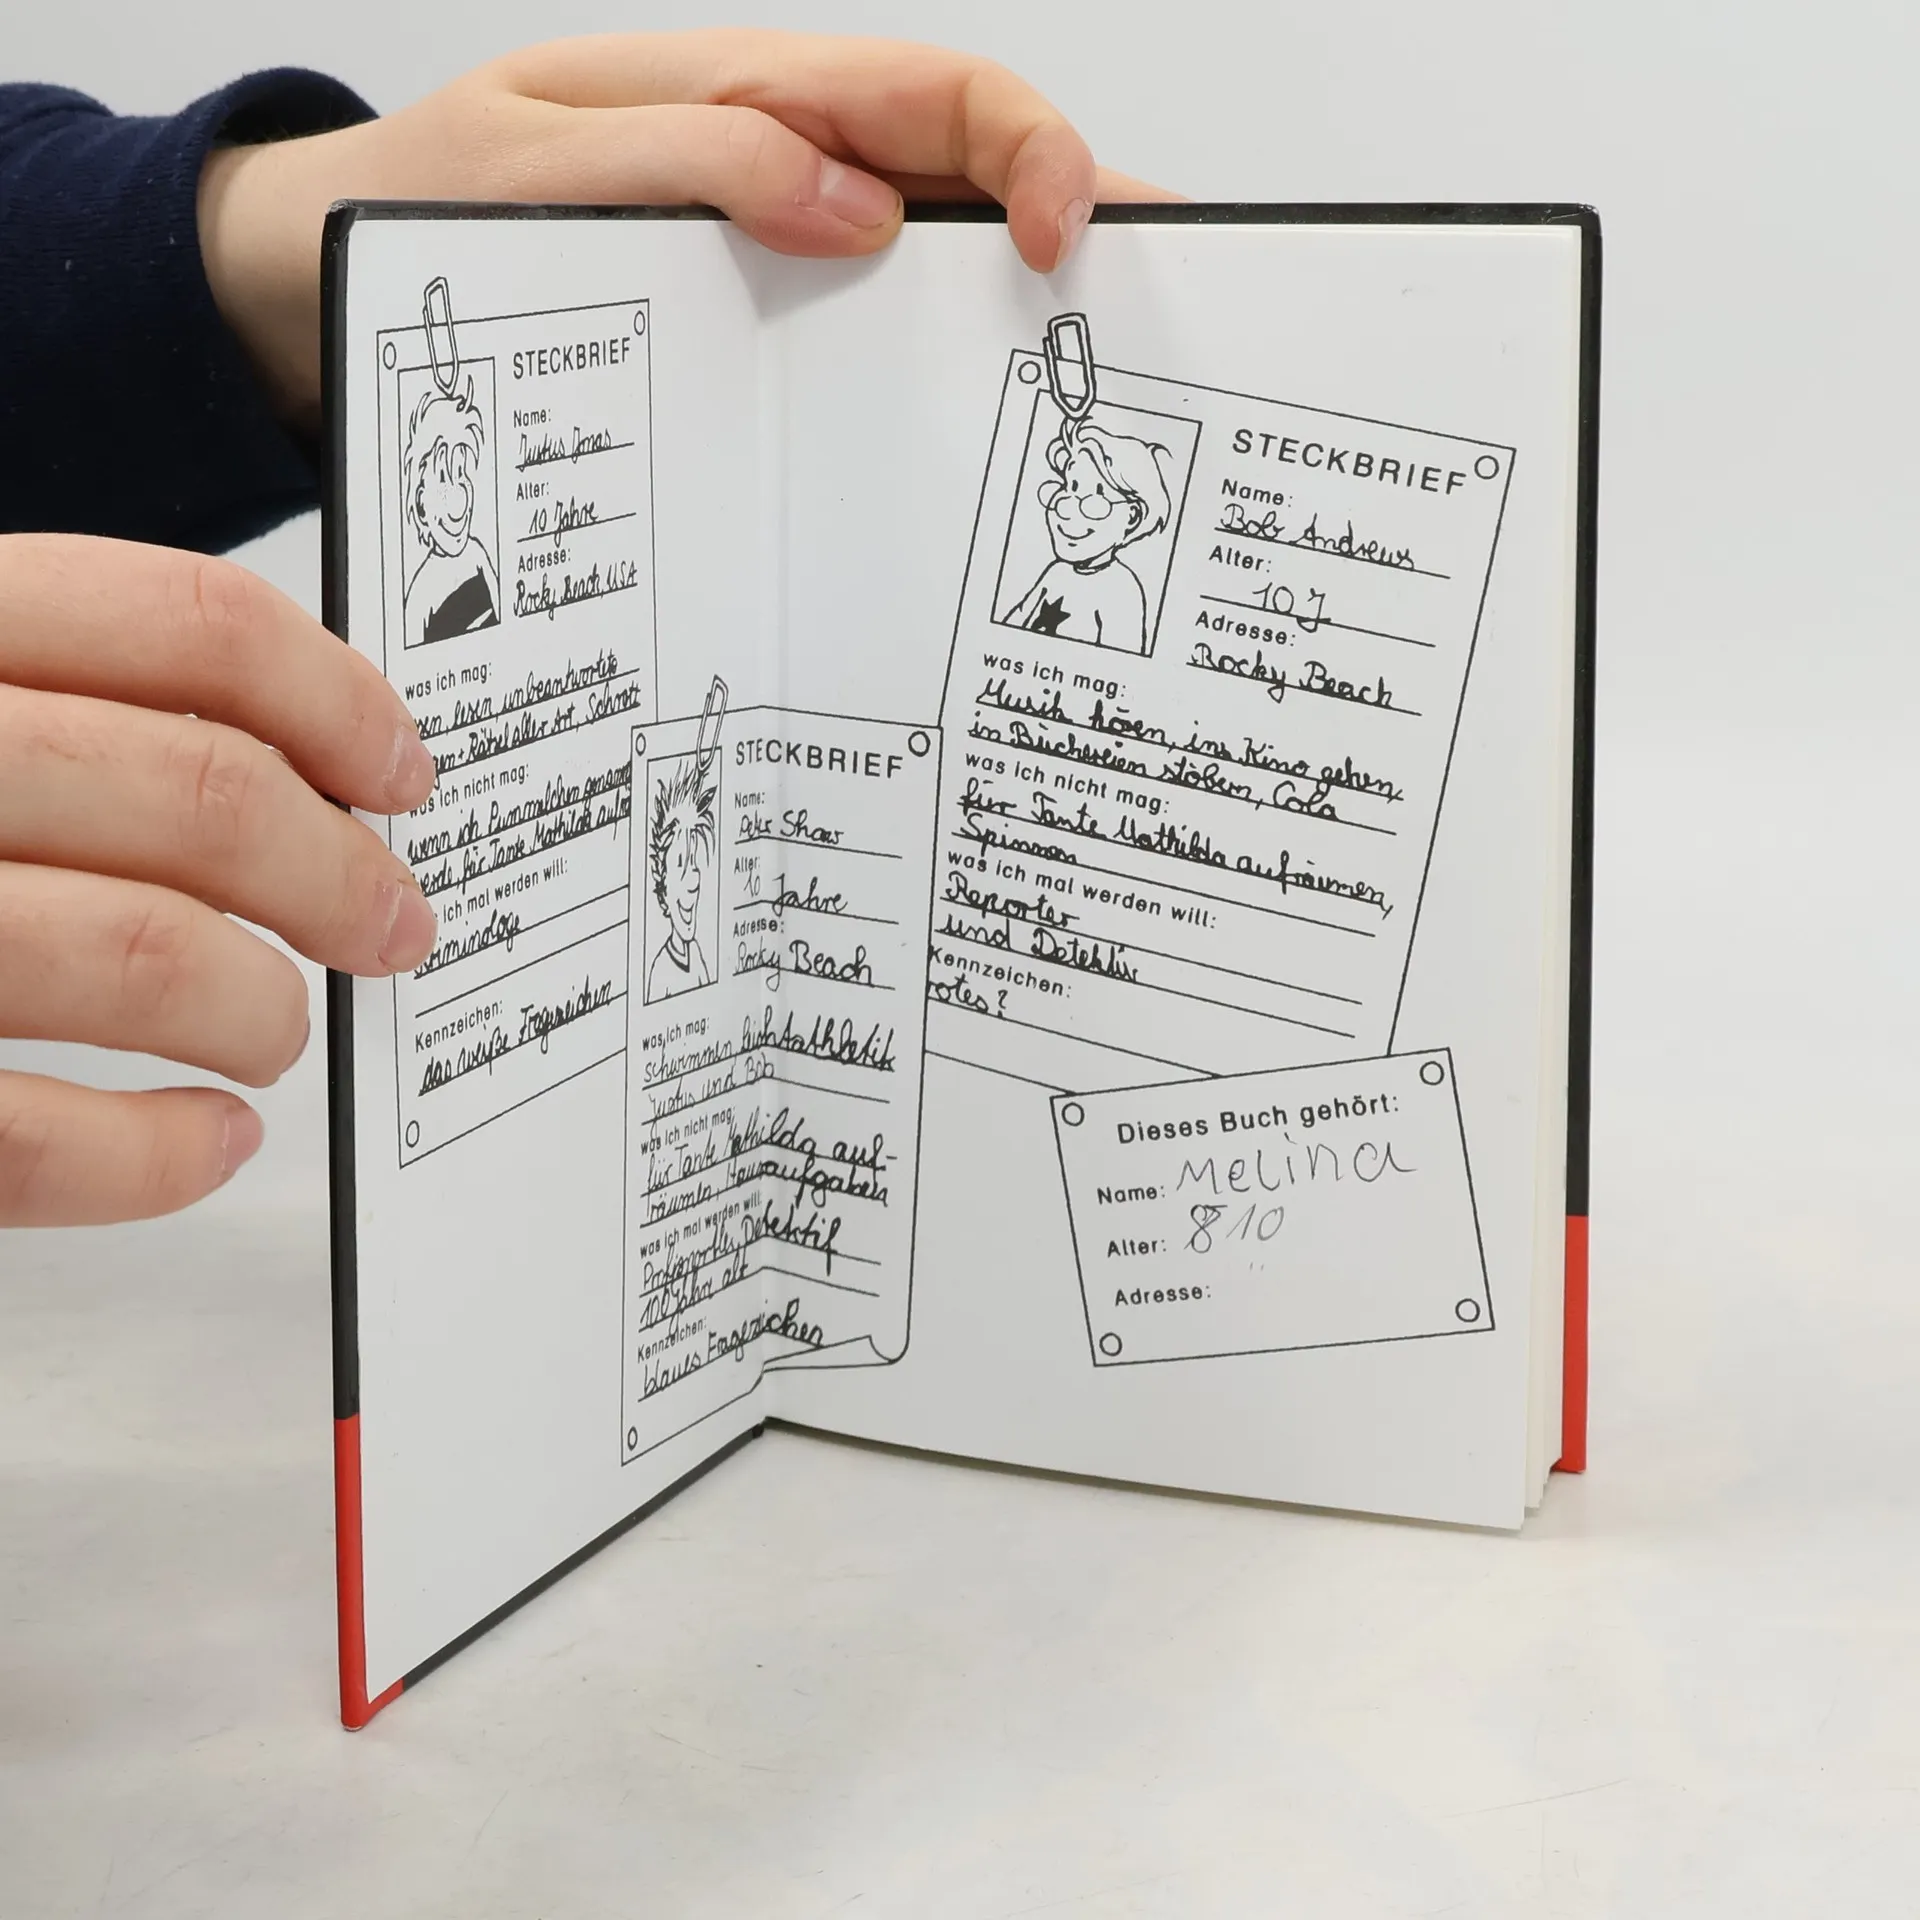 STECKBRIEF
Name:
Justus Jonas
Alter:
10 Jahre
Adresse:
Rocky Beach, USA
was ich mag:
lesen, unbeantwortete
+ Rätsel aller Art, Schrott
was ich nicht mag:
wenn ich Pummelchen genannt
werde, für Tante Mathilda
ich mal werden will:
Kriminologe
Kennzeichen:
das weiße Fragezeichen
STECKBRIEF
Name:
Peter Shaw
Alter:
10 Jahre
Adresse:
Rocky Beach
was ich mag:
schwimmen, Leichtathletik
Justus und Bob
was ich nicht mag:
für Tante Mathilda auf-
räumen, Hausaufgaben
was ich mal werden will:
Profisportler, Detektif
100 Jahre alt
Kennzeichen:
blaues Fragezeichen
STECKBRIEF
Name:
Bob Andrews
Alter:
10 J
Adresse:
Rocky Beach
was ich mag:
Musik hören, ins Kino gehen,
in Büchereien stöbern, Cola
was ich nicht mag:
für Tante Mathilda aufräumen,
Spinnen
was ich mal werden will:
Reporter
und Detektiv
Kennzeichen:
rotes ?
Dieses Buch gehört:
Name: Melina
Alter: 8 10
Adresse: